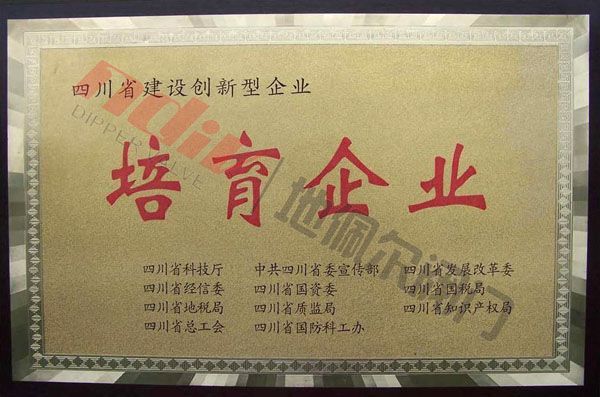 四川省建设创新型企业
培育企业
四川省科技厅 中共四川省委宣传部 四川省发展改革委
四川省经信委 四川省国资委 四川省国税局
四川省地税局 四川省质监局 四川省知识产权局
四川省总工会 四川省国防科工办
DIPPER VALVE
地佩尔阀门